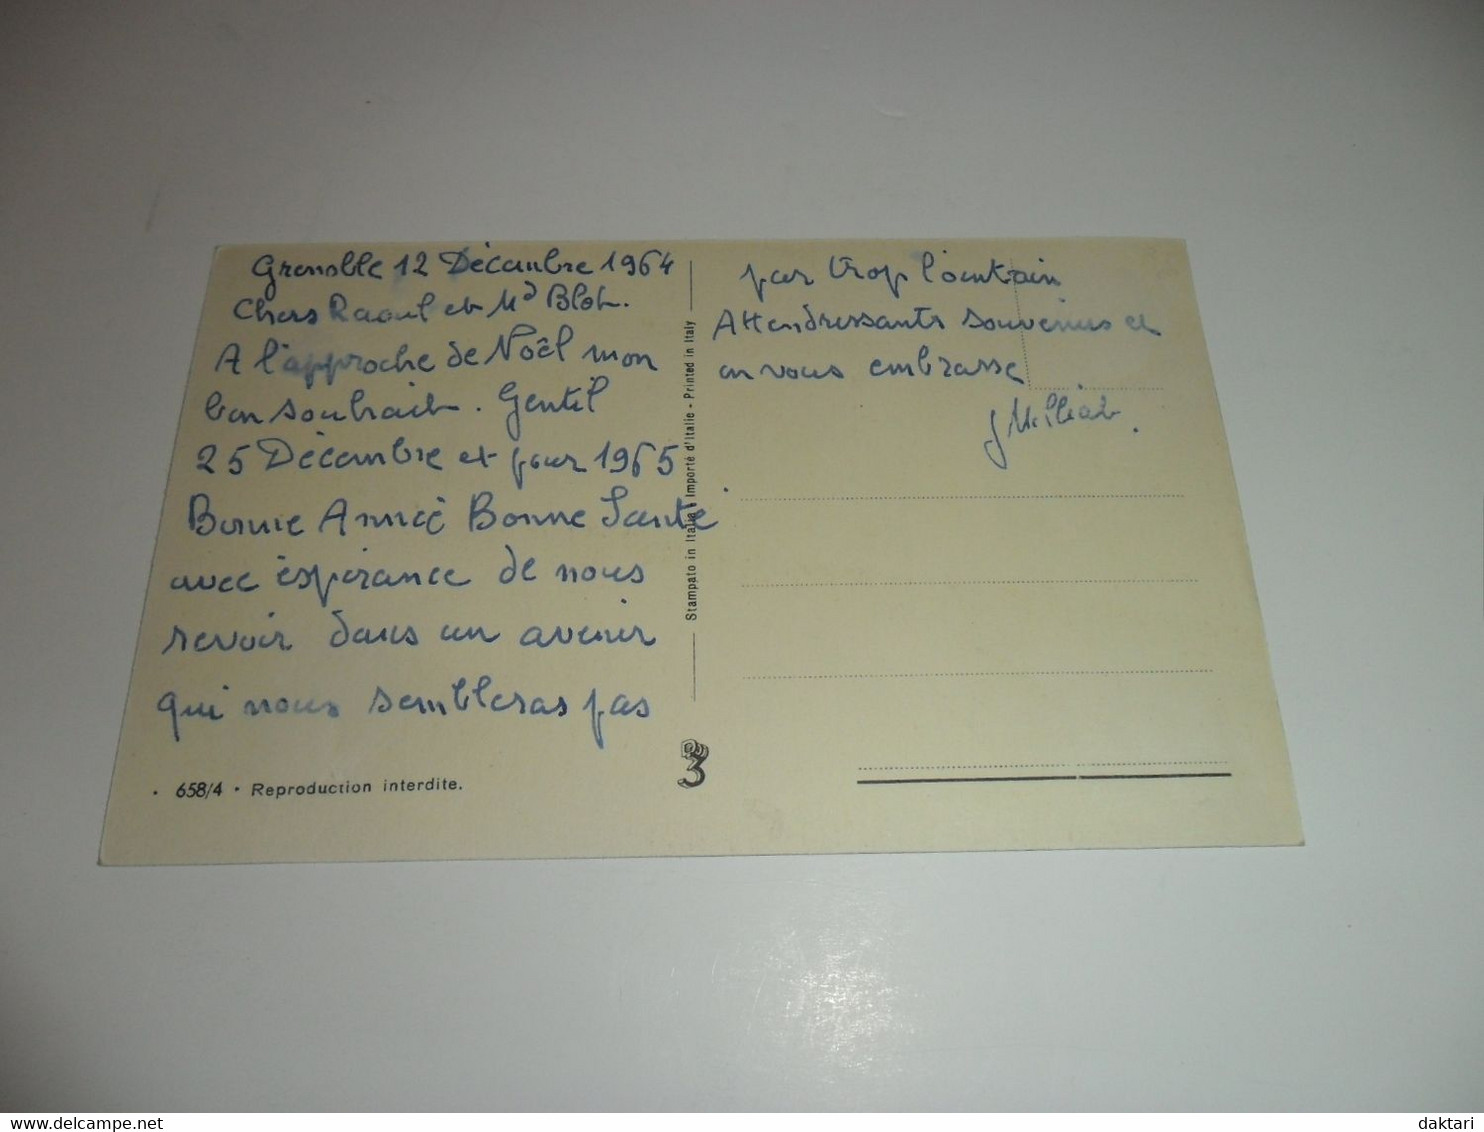 Grenoble 12 Décembre 1964
Chers Raoul et Md Blot.
A l'approche de Noël mon
bon souhait. Gentil
25 Décembre et pour 1965
Bonne Année Bonne Santé
avec éspérance de nous
revoir dans un avenir
qui nous sembleras pas
658/4 • Reproduction interdite.
Stampato in Italia • Importé d'Italie - Printed in Italy
3
par trop lointain
Attendressants souvenirs et
en vous embrasse
www.delcampe.net
daktari